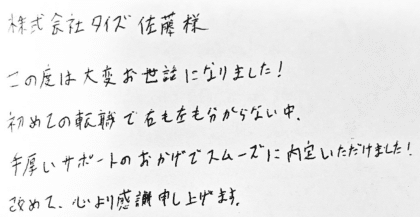 株式会社タイズ 佐藤様
この度は大変お世話になりました!
初めての転職で右も左も分からない中、
手厚いサポートのおかげでスムーズに内定いただけました!
改めて、心より感謝申し上げます。